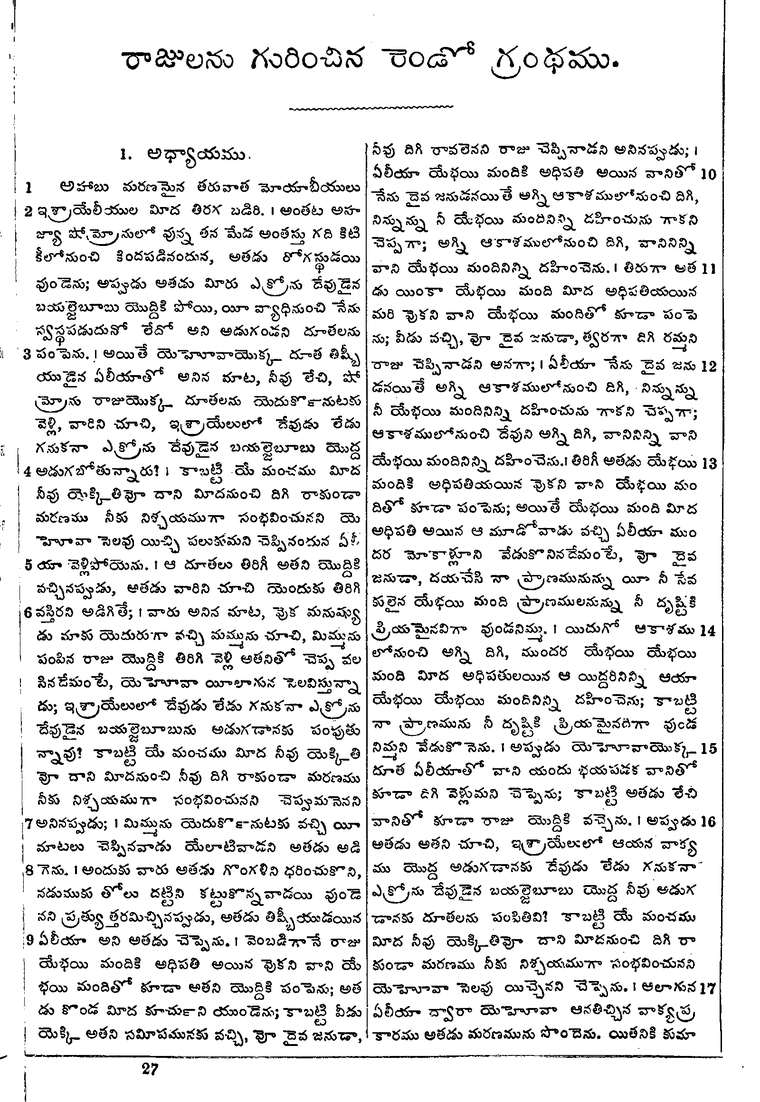 రాజులను గురించిన రెండో గ్రంథము.
1. అధ్యాయము.
1 అహాబు మరణమైన తరువాత మోయాబీయులు
2 ఇశ్రాయేలీయుల మీద తిరగ బడిరి. । అంతట అహ
జ్యా షోమ్రోనులో వున్న తన మేడ అంతస్తు గది కిటి
కీలోనుంచి కిందపడినందున, అతడు రోగస్థుడయి
వుండెను; అప్పుడు అతడు మీరు ఎక్రోను దేవుడైన
బయల్జెబూబు యొద్దికి పోయి, యీ వ్యాధినుంచి నేను
స్వస్థపడుదునో లేదో అని అడుగండని దూతలను
3 పంపెను. । అయితే యెహోవాయొక్క దూత తిష్బీ
యుడైన ఏలీయాతో అనిన మాట, నీవు లేచి, షో
మ్రోను రాజుయొక్క దూతలను యెదుకొనుటకు
వెళ్లి, వారిని చూచి, ఇశ్రాయేలులో దేవుడు లేడు
గనుకనా ఎక్రోను దేవుడైన బయల్జెబూబు యొద్ద
4 అడుగబోతున్నారు? । కాబట్టి యే మంచము మీద
నీవు యెక్కితివో దాని మీదనుంచి దిగి రాకుండా
మరణము నీకు నిశ్చయముగా సంభవించునని యె
హోవా సెలవు యిచ్చి పలుకుమని చెప్పినందున ఏలీ
5 యా వెళ్లిపోయెను. । ఆ దూతలు తిరిగీ అతని యొద్దికి
వచ్చినప్పుడు, అతడు వారిని చూచి యెందుకు తిరిగి
6 వస్తిరని అడిగితే; । వారు అనిన మాట, వొక మనుష్యు
డు మాకు యెదురుగా వచ్చి మమ్మును చూచి, మిమ్మును
పంపిన రాజు యొద్దికి తిరిగి వెళ్లి అతనితో చెప్ప వల
సినదేమంటే, యెహోవా యీలాగున సెలవిస్తున్నా
డు; ఇశ్రాయేలులో దేవుడు లేడు గనుకనా ఎక్రోను
దేవుడైన బయల్జెబూబును అడుగడానకు పంపుతు
న్నావు? కాబట్టి యే మంచము మీద నీవు యెక్కితి
వో దాని మీదనుంచి నీవు దిగి రాకుండా మరణము
నీకు నిశ్చయముగా సంభవించునని చెప్పుమనెనని
7 అనినప్పుడు; । మిమ్మును యెదుకొనుటకు వచ్చి యీ
మాటలు చెప్పినవాడు యేలాటివాడని అతడు అడి
8 గెను. । అందుకు వారు అతడు గొంగళిని ధరించుకొని,
నడుముకు తోలు దట్టిని కట్టుకొన్నవాడయి వుండె
నని ప్రత్యుత్తరమిచ్చినప్పుడు, అతడు తిష్బీయుడయిన
9 ఏలీయా అని అతడు చెప్పెను. । వెంబడిగానే రాజు
యేభయి మందికి అధిపతి అయిన వొకని వాని యే
భయి మందితో కూడా అతని యొద్దికి పంపెను; అత
డు కొండ మీద కూచుని యుండెను; కాబట్టి వీడు
యెక్కి అతని సమీపమునకు వచ్చి, వో దైవ జనుడా,
నీవు దిగి రావలెనని రాజు చెప్పినాడని అనినప్పుడు; ।
ఏలీయా యేభయి మందికి అధిపతి అయిన వానితో 10
నేను దైవ జనుడనయితే అగ్ని ఆకాశములోనుంచి దిగి,
నిన్నున్ను నీ యేభయి మందినిన్ని దహించును గాకని
చెప్పగా; అగ్ని ఆకాశములోనుంచి దిగి, వానినిన్ని
వాని యేభయి మందినిన్ని దహించెను. । తిరుగా అత 11
డు యింకా యేభయి మంది మీద అధిపతియయిన
మరి వొకని వాని యేభయి మందితో కూడా పంపె
ను; వీడు వచ్చి, వో దైవ జనుడా, త్వరగా దిగి రమ్మని
రాజు చెప్పినాడని అనగా; । ఏలీయా నేను దైవ జను 12
డనయితే అగ్ని ఆకాశములోనుంచి దిగి, నిన్నున్ను
నీ యేభయి మందినిన్ని దహించును గాకని చెప్పగా;
ఆకాశములోనుంచి దేవుని అగ్ని దిగి, వానినిన్ని వాని
యేభయి మందినిన్ని దహించెను. । తిరిగీ అతడు యేభయి 13
మందికి అధిపతియయిన వొకని వాని యేభయి మం
దితో కూడా పంపెను; అయితే యేభయి మంది మీద
అధిపతి అయిన ఆ మూడోవాడు వచ్చి ఏలీయా ముం
దర మోకాళ్లూని వేడుకొనినదేమంటే, వో దైవ
జనుడా, దయచేసి నా ప్రాణమునున్ను యీ నీ సేవ
కులైన యేభయి మంది ప్రాణములనున్ను నీ దృష్టికి
ప్రియమైనవిగా వుండనిమ్ము. । యిదుగో ఆకాశము 14
లోనుంచి అగ్ని దిగి, ముందర యేభయి యేభయి
మంది మీద అధిపతులయిన ఆ యిద్దరినిన్ని ఆయా
యేభయి యేభయి మందినిన్ని దహించెను; కాబట్టి
నా ప్రాణమును నీ దృష్టికి ప్రియమైనదిగా వుండ
నిమ్మని వేడుకొనెను. । అప్పుడు యెహోవాయొక్క 15
దూత ఏలీయాతో వాని యందు భయపడక వానితో
కూడా దిగి వెళ్లుమని చెప్పెను; కాబట్టి అతడు లేచి
వానితో కూడా రాజు యొద్దికి వచ్చెను. । అప్పుడు 16
అతడు అతని చూచి, ఇశ్రాయేలులో ఆయన వాక్య
ము యొద్ద అడుగడానకు దేవుడు లేడు గనుకనా
ఎక్రోను దేవుడైన బయల్జెబూబు యొద్ద నీవు అడుగ
డానకు దూతలను పంపితివి? కాబట్టి యే మంచము
మీద నీవు యెక్కితివో దాని మీదనుంచి దిగి రా
కుండా మరణము నీకు నిశ్చయముగా సంభవించునని
యెహోవా సెలవు యిచ్చెనని చెప్పెను. । ఆలాగున 17
ఏలీయా ద్వారా యెహోవా ఆనతిచ్చిన వాక్య ప్ర
కారము అతడు మరణమును పొందెను. యితనికి కుమా
27